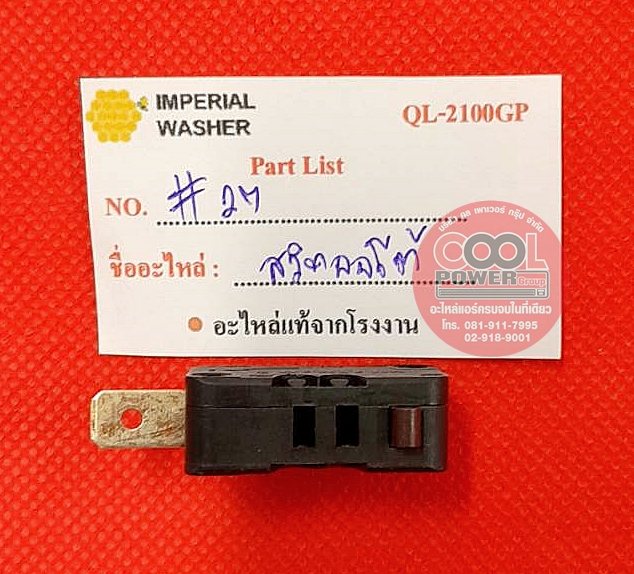 IMPERIAL
WASHER
QL-2100GP
Part List
NO. # 27
ชื่ออะไหล่ : สวิทออโต้
อะไหล่แท้จากโรงงาน
บริษัท คูล เพาเวอร์ กรุ๊ป จำกัด
COOL
POWER Group
อะไหล่แอร์ครบจบในที่เดียว
โทร. 081-911-7995
02-918-9001